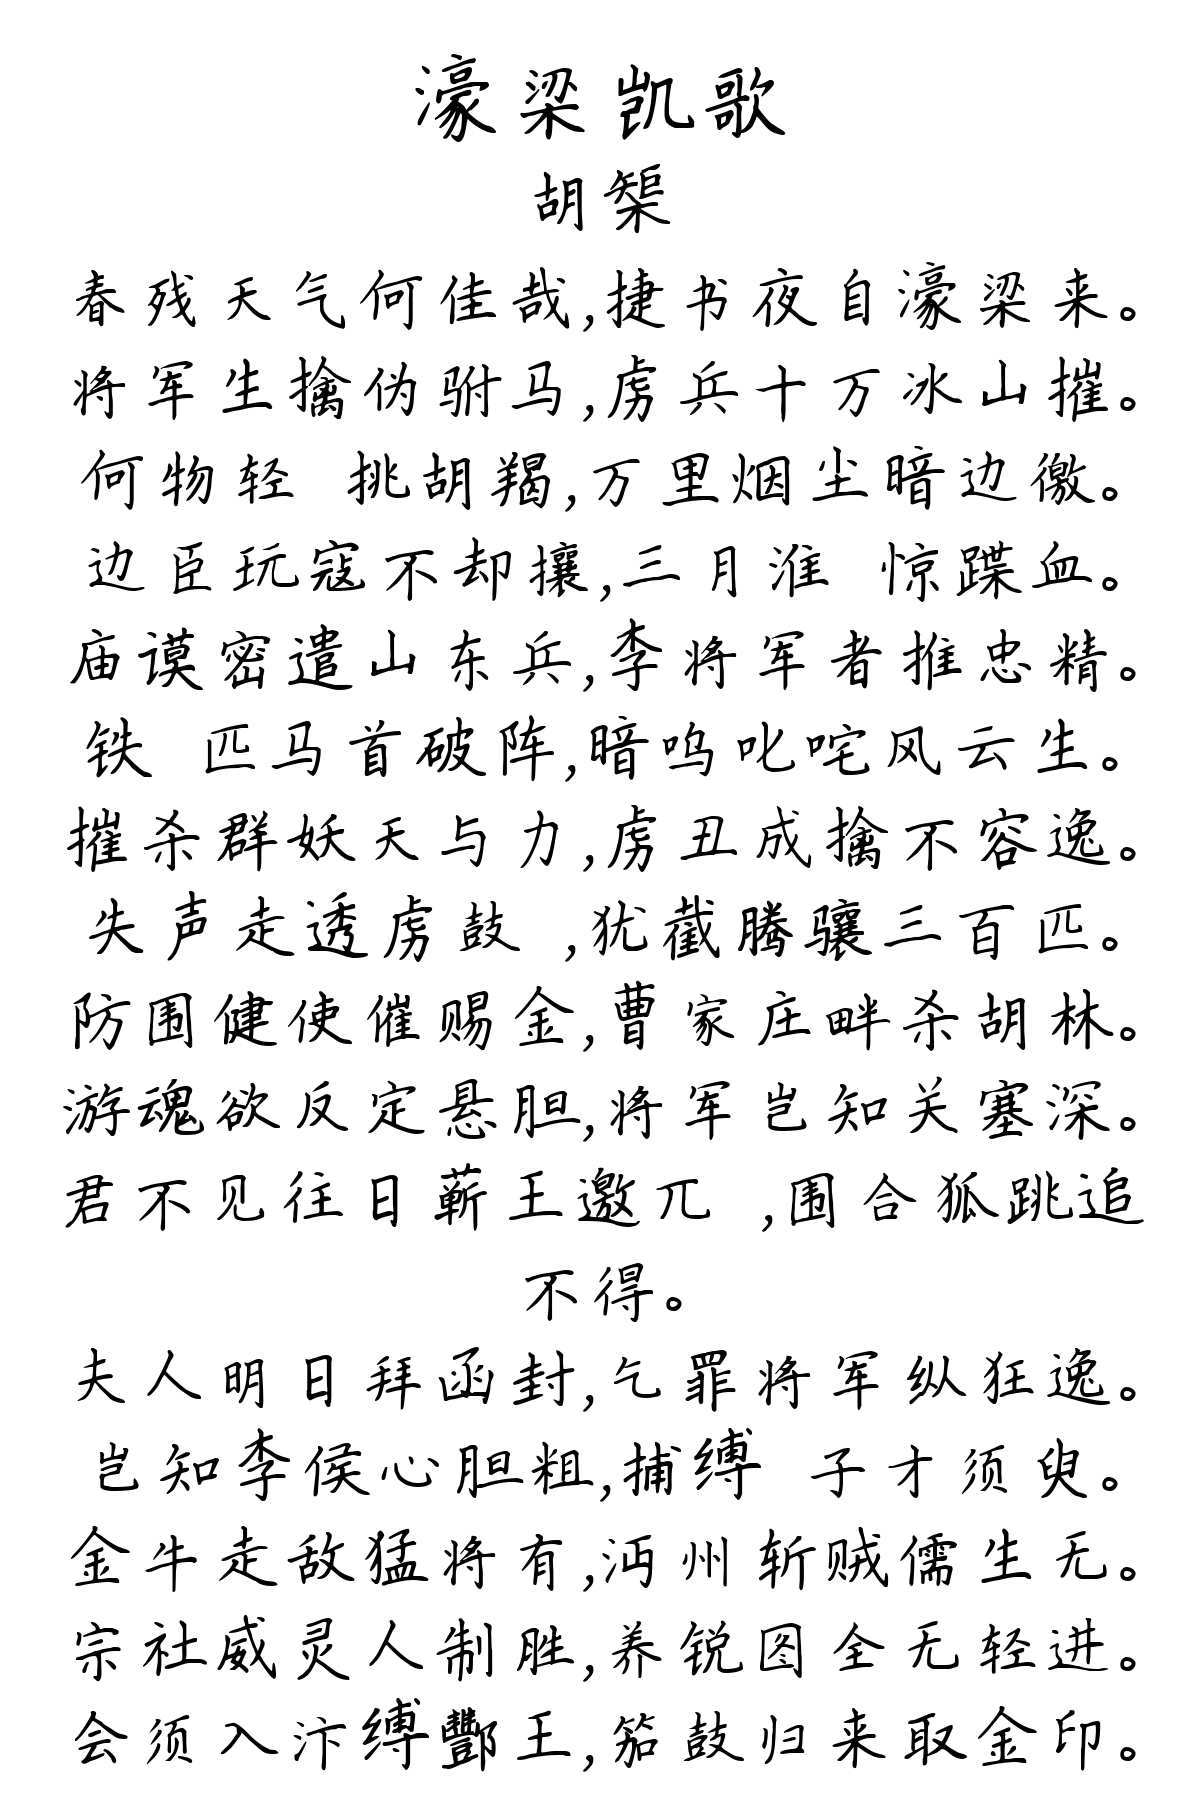 濠梁凯歌
胡榘
春残天气何佳哉,捷书夜自濠梁来。
将军生擒伪驸马,虏兵十万冰山摧。
何物轻 挑胡羯,万里烟尘暗边徼。
边臣玩寇不却攘,三月淮 惊蹀血。
庙谟密遣山东兵,李将军者推忠精。
铁 匹马首破阵,喑呜叱咤风云生。
摧杀群妖天与力,虏丑成擒不容逸。
失声走透虏鼓 ,犹截腾骧三百匹。
防围健使催赐金,曹家庄畔杀胡林。
游魂欲反定悬胆,将军岂知关塞深。
君不见往日蕲王邀兀 ,围合狐跳追
不得。
夫人明日拜函封,乞罪将军纵狂逸。
岂知李侯心胆粗,捕缚 子才须臾。
金牛走敌猛将有,沔州斩贼儒生无。
宗社威灵人制胜,养锐图全无轻进。
会须入汴缚酆王,笳鼓归来取金印。